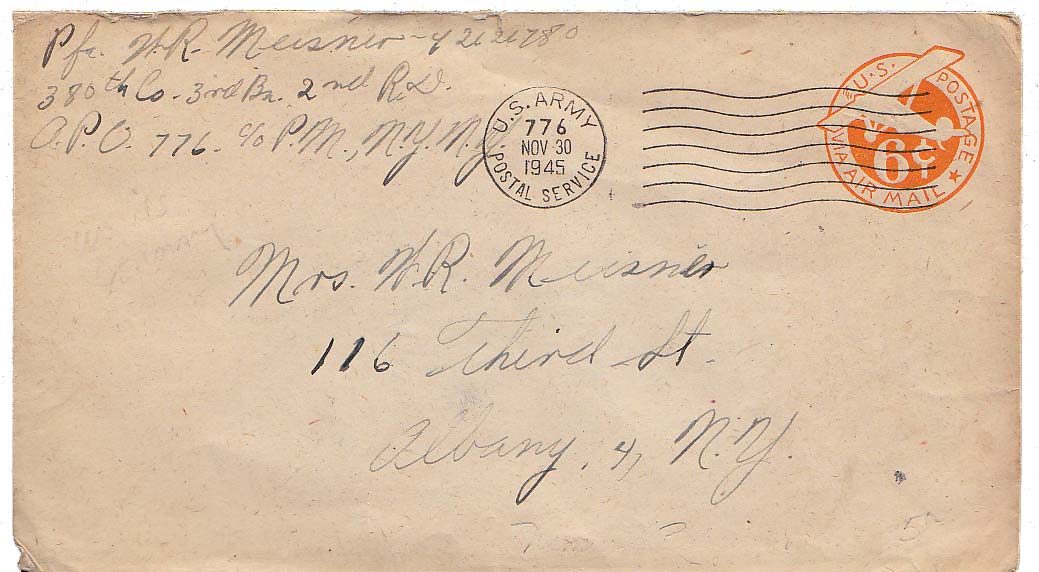 Pfc. W.R. Meisner - 42121780
380th Co. - 3rd Bn. 2nd R.D.
A.P.O. 776 c/o P.M., N.Y. N.Y.
U.S. ARMY
776
NOV 30
1945
POSTAL SERVICE
U.S. POSTAGE
6¢
VIA AIR MAIL
Mrs. W.R. Meisner
116 Third St.
Albany, 4, N.Y.